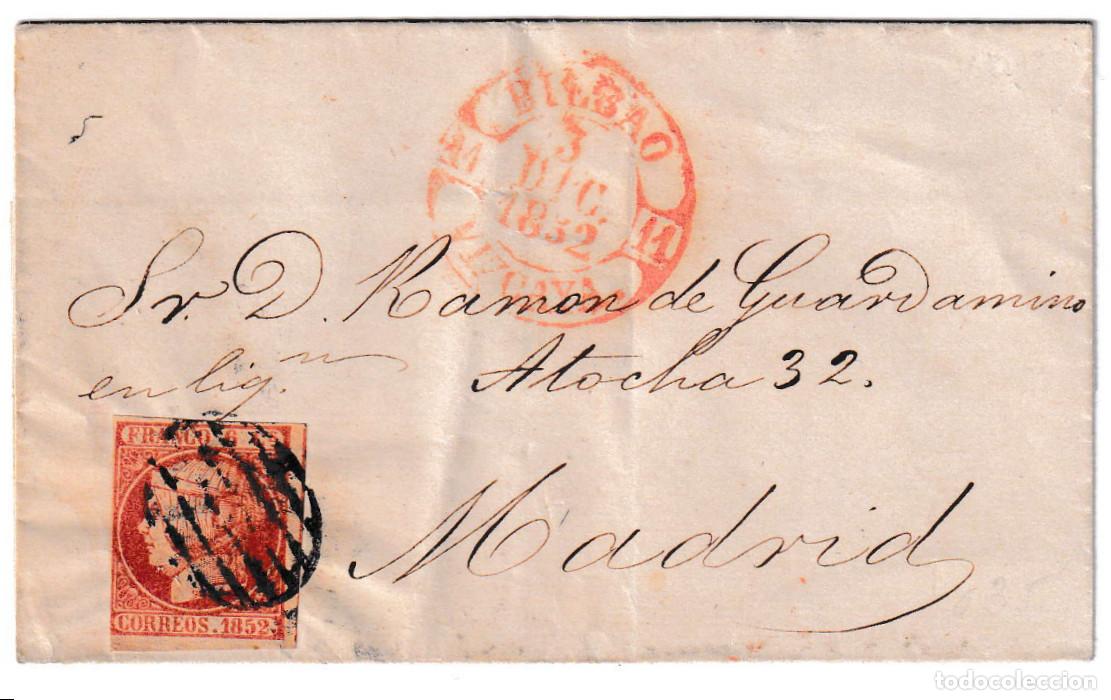 5
BILBAO
3
DIC.
1852
11 11
VIZCAYA.
Sr. D. Ramon de Guardamino
en liq.n
Atocha 32.
Madrid
FRANCO 6
CORREOS.1852.
todocoleccion